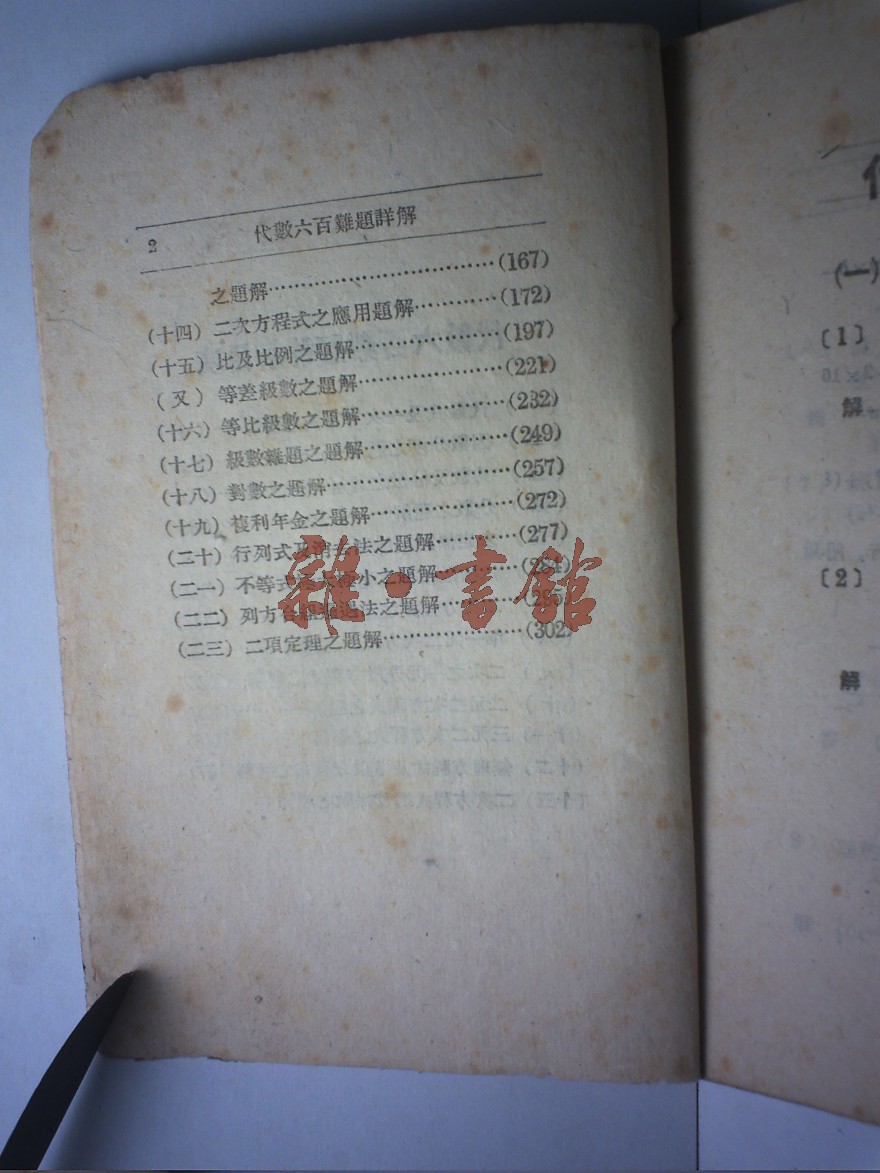 2 代數六百難題詳解
之題解……………………………(167)
(十四) 二次方程式之應用題解…………(172)
(十五) 比及比例之題解…………………(197)
(又) 等差級數之題解…………………(221)
(十六) 等比級數之題解…………………(232)
(十七) 級數難題之題解…………………(249)
(十八) 對數之題解………………………(257)
(十九) 複利年金之題解…………………(272)
(二十) 行列式及消去法之題解…………(277)
(二一) 不等式 小之題解…………
(二二) 列方 法之題解…………
(二三) 二項定理之題解…………………(302)
雜·書館
(一)
〔1〕
解
〔2〕
解